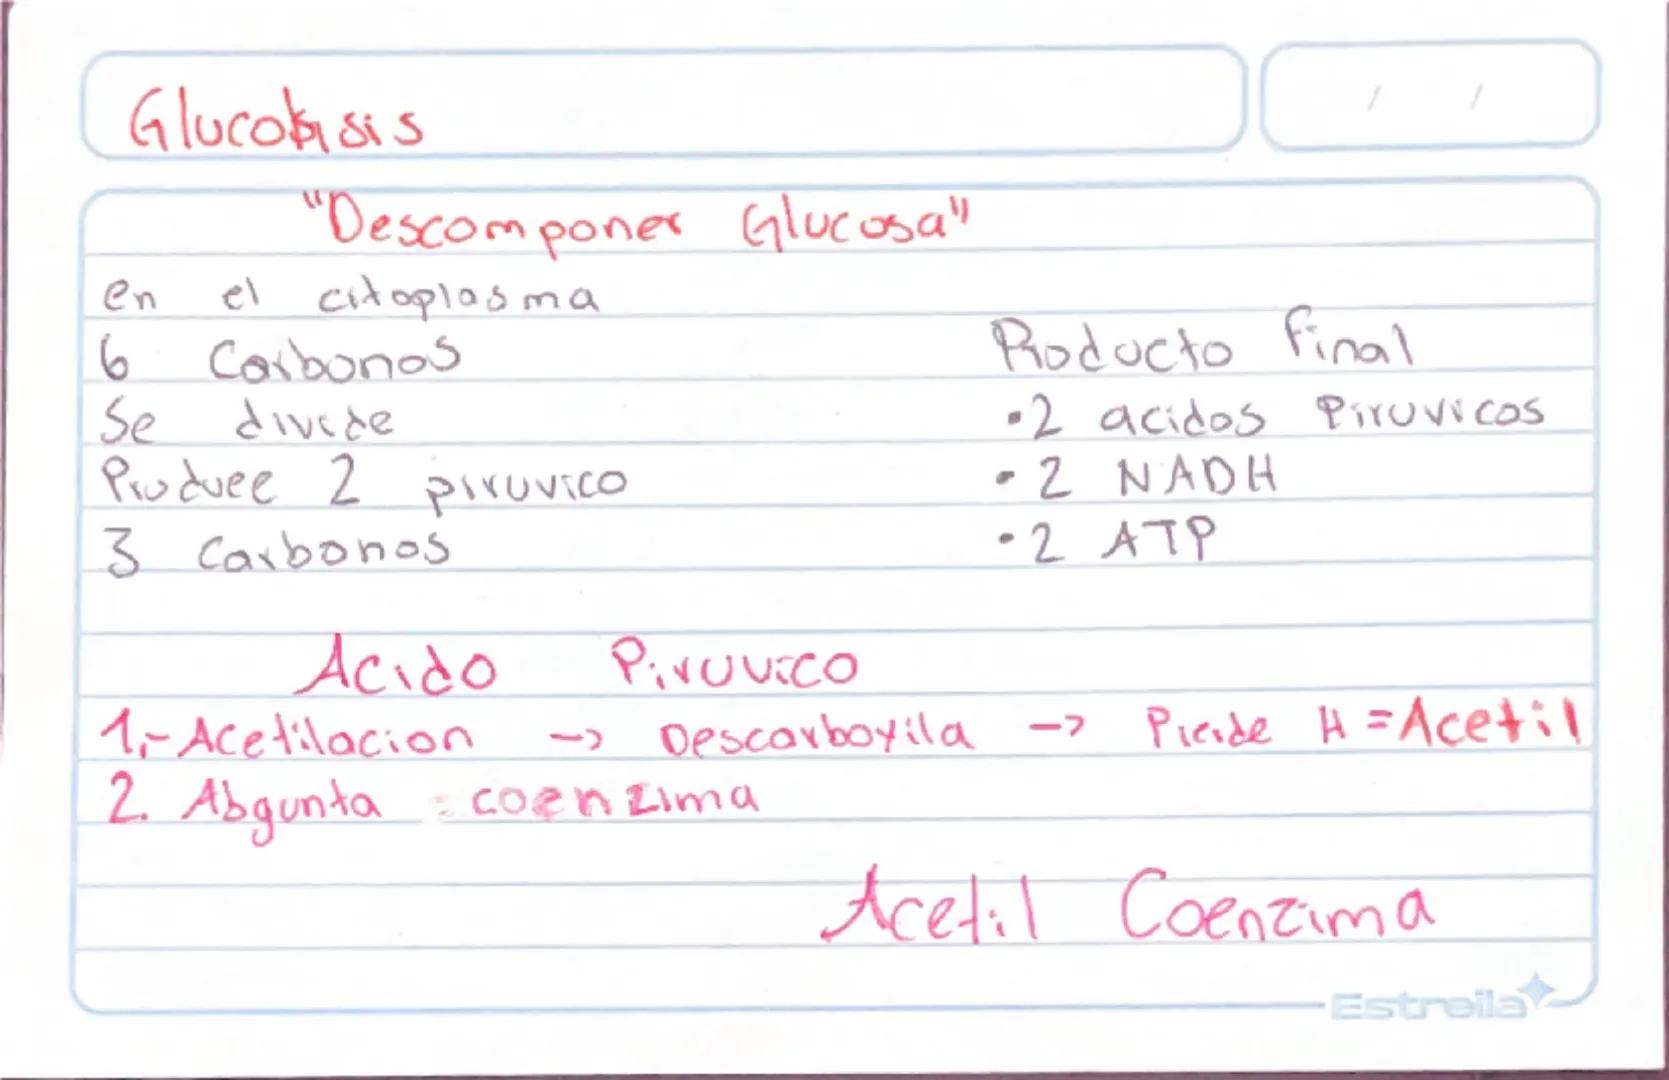 Glucolisis
"Descomponer Glucosa"
en el citoplasma
6 Carbonos
Se divide
Produce 2 piruvico
3 Carbonos
Producto final
•2 acidos Piruvicos
•2 NADH
•2 ATP
Acido Piruvico
1.- Acetilacion -> Descarboxila -> Pierde H = Acetil
2. Abgunta coenzima
Acetil Coenzima
Estrella